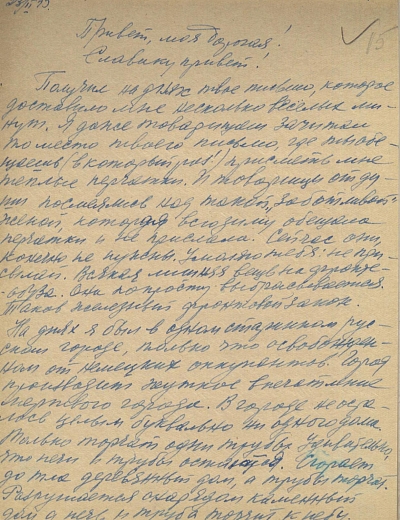 15
Привет, моя дорогая!
Славику привет!
Получил на днях твое письмо, которое
доставило мне несколько веселых ми-
нут. Я даже товарищам зачитал
то место твоего письма, где ты обе-
щаешь (в который раз!) прислать мне
теплые перчатки. И товарищи от ду-
ши посмеялись над такой "заботливой"
женой, которая всю зиму обещала
перчатки и не прислала. Сейчас они,
конечно не нужны. Умоляю тебя: не при-
сылай. Всякая лишняя вещь на фронте-
обуза. Они попросту выбрасываются.
Таков железный фронтовой закон.
На днях я был в одном старинном рус-
ском городе, только что освобожден-
ном от немецких оккупантов. Город
производит жуткое впечатление
мертвого города. В городе не оста-
лось целым буквально ни одного дома.
Только торчат одни трубы. Удивительно,
что печи и трубы остаются. Сгорает
до тла деревянный дом, а трубы торчат.
Разрушается снарядом каменный
дом, а печь и труба торчит к небу